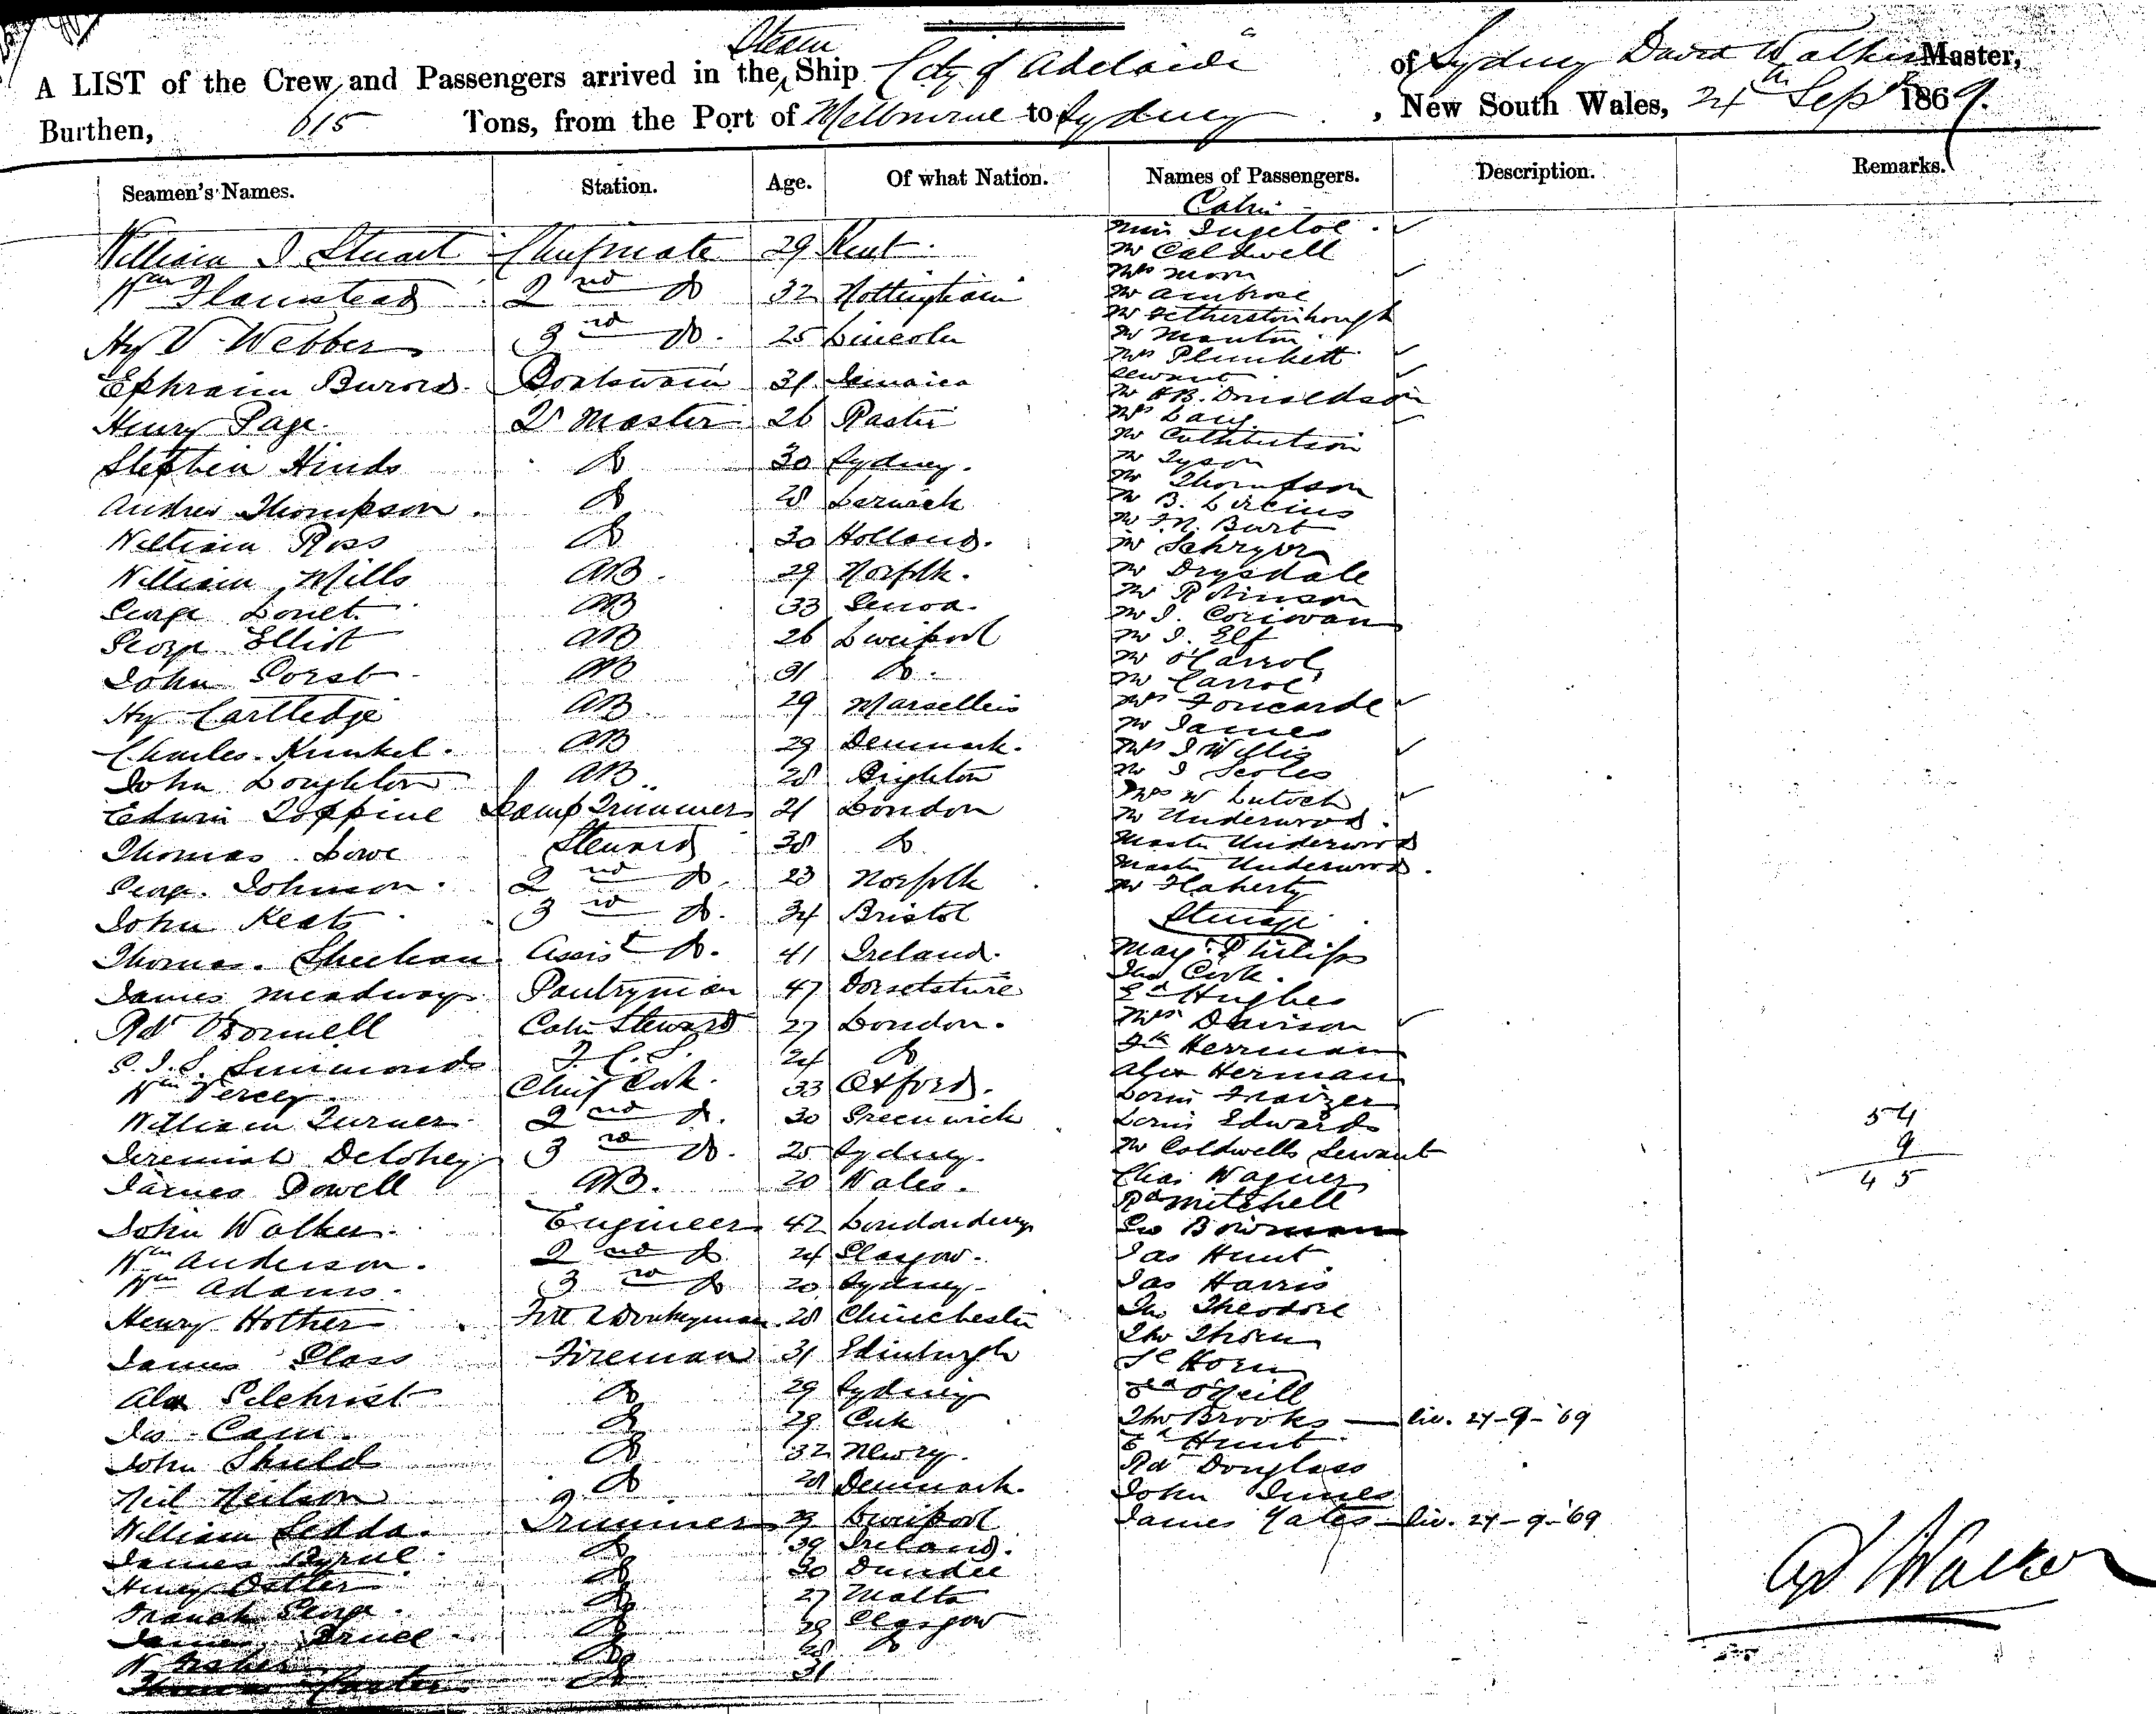 Steam
A LIST of the Crew, and Passengers arrived in the Ship City of Adelaide of Sydney David Walker Master,
Burthen, 615 Tons, from the Port of Melbourne to Sydney, New South Wales, 24th Sepr 1869.
Seamen's Names. Station. Age. Of what Nation. Names of Passengers. Description. Remarks.
William J Stuart Chief mate 29 Kent.
Wm Flamstead 2nd Do 32 Nottingham
Hy V Webber 3rd Do. 25 Lincoln
Ephraim Boatswain 31 Jamaica
Henry Page. Qr Master 26
Stephen Hinds Do 30 Sydney.
Andrew Thompson. Do 28 Lerwick
William Ross Do 30 Holland.
William Mills AB. 29 Norfolk.
George AB 33 Genoa.
George Elliot AB 26 Liverpool
John AB 31 Do.
Hy Cartledge AB. 29 Marselleis
Charles Kunkel. AB 29 Denmark.
John Loughton AB.. 28 Brighton
Edwin Toppine Lamp Trimmer 21 London
Thomas Lowe Steward 38 Do
George Johnson. 2nd Do. 23 Norfolk
John Keats 3rd Do. 34 Bristol
Thomas. Sheehan Assist Do. 41 Ireland.
James Meadway Pantryman 47 Dorsetshire
Rd O'Donnell Cabin Steward 27 London.
Simmonds F.C.S. 24 Do
Wm Percey Chief Cook. 33 Oxford.
William Turner 2nd Do. 30 Greenwich
Jeremiah Delohey 3rd Do. 25 Sydney.
James Powell AB. 20 Wales.
John Walker. Engineer 42 Londonderry
Wm Anderson. 2nd Do 24 Glasgow.
Wm Adams. 3rd Do 20 Sydney
Henry Hother Donkeyman 28 Chinchester
James Glass Fireman 31 Edinburgh
Alex Gilchrist Do 29 Sydney
Jas Cam. Do 29 Cork
John Shield Do 32 Newry.
Neil Neilson Do 28 Denmark.
William Ledda. Trimmer 29 Liverpool
James Byrne Do 39 Ireland.
Henry Ostler Do 30 Dundee
George. Do 27 Malta
James Bruce Do 29 Glasgow
W Fisher Do 28 Do
Thomas Carter Do 31
Cabin
Miss Ingeloe
Mr Caldwell
Mrs Moon
Mr Ambrose
Mr Fetherstonhough
Mr Manton
Mrs Plunkett
Servant
Mr H.B. Donaldson
Mrs Lang
Mr Cuthbertson
Mr Tyson
Mr Thompson
Mr B. Levcius
Mr F.N. Burt
Mr Schryver
Mr Drysdale
Mr Robinson
Mr J. Corrivan
Mr J. Elf
Mr O'Carrol
Mr Carrol
Mrs Foucarde
Mr James
Mrs J Willis
Mr J Scoles
Mrs W Lutoch
Mr Underwood.
Master Underwood
Master Underwood.
Mr Flaherty
Steerage
Margt Philips
Jno Cook.
Ed Hughes
Mrs Davison
Fk Herrman
Alfx Herman
Louis Fraizer
Louis Edwards
Mr Coldwells Servant
Chas Wagner
Rd Mitchell
Geo Bowman
Jas Hunt
Jas Harris
Theodore
Thos Thorn
Horn
O'Neill
Thos Brooks — liv. 24-9-'69
Ed Hunt
Rd Douglass
John Innes
James Yates — liv. 24-9-'69
54
9
45
Walker